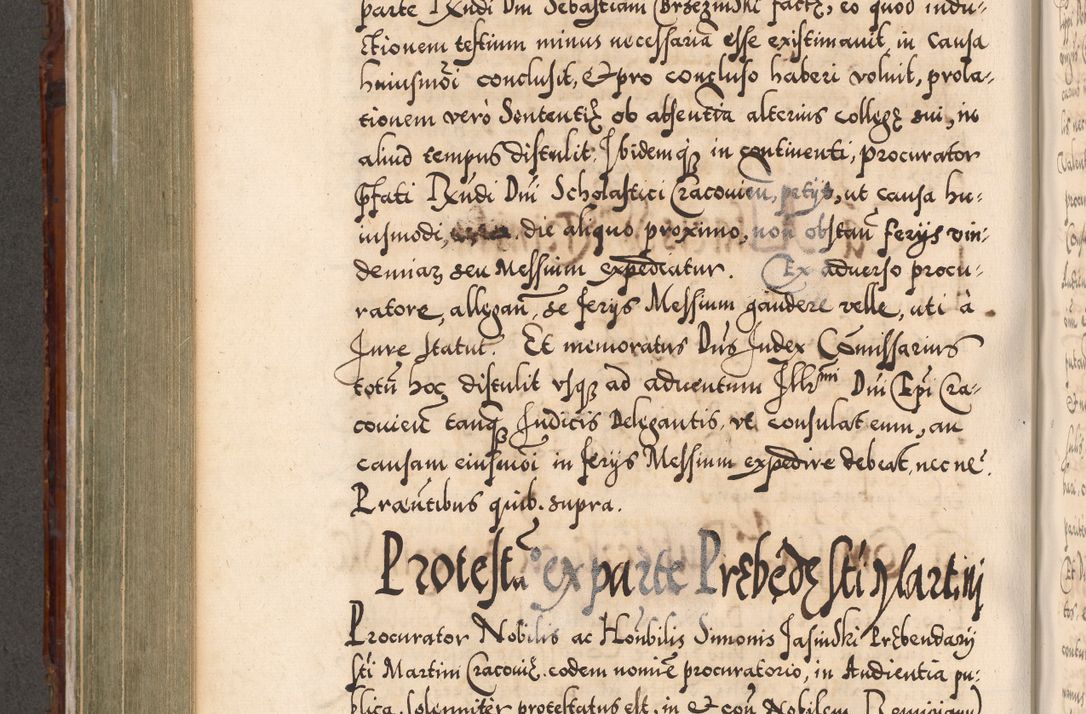 parte Rx̃ndi Dni Sebastiani Brzezinski factȩ, eo quod indu-
ctionem testium minus necessariã esse existimauit, in causa
huiusmõi conclusit, & pro concluso haberi voluit, prola-
tionem verò Sententiȩ ob absentia alterius collegȩ sui, in
aliud tempus distulit. Ibidemq̃ in continenti, procurator
Pfati Rx̃ndi Dni Scholastici Cracouien, petijt, ut causa hu-
iusmodi, die aliquo proximo, non obstañ ferijs vin-
demiaȝ seu Messium expediatur. Ex aduerso procu-
ratore, allegañ, se ferijs Messium gaudere velle, uti à
Jure statut. Et memoratus Dns Judex Cõmissarius
totũ hoc distulit vsq̃ ad aduentum Illhmi Dni Epi Cra-
couieñ tanq̃ Judicis Delegantis, vt consulat eum, an
causam eiusmõi in ferijs Messium expedire debeat, nec ne.
Præsentibus quib. supra.
Protestã ex parte Prȩbẽdȩ Sti Martini
Procurator Nobilis ac Honbilis Simonis Jasinski Prȩbendarij
Sti Martini Cracouiȩ eodem nomiẽ procuratorio, in Audientia pu-
blica, solenniter protestatus est, in & con Nobilem